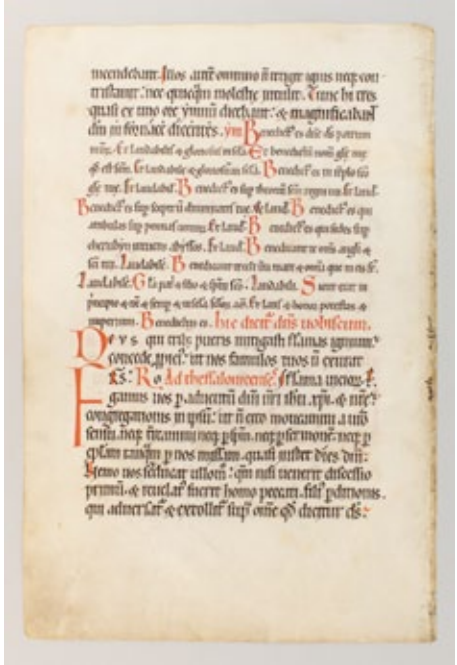 incendebant. Illos aut omnino n tetigit ignis neq; con
tristauit. nec quicq̄m molestie intulit. Tunc hi tres
quasi ex uno ore ymnū dicebant. & magnificabant
dm in fornace dicentes. ym Benedict es dne ds patrum
nrōꝝ. Et laudabilis & gloriosus in scla. Et benedictū nom glē tuę
qd est scm. Et laudabile & gloriosum in scla. Benedict es in tēplo scō
glę tuę. Et laudabil. Benedict es sup thronū scm regni tui. Et laud.
Benedict es sup sceptrū diuinitatis tuę. Et laud. Benedict es qui
ambulas sup pennas uentoꝝ. Et laud. Benedict es qui sedes sup
cherubyn intuens abyssos. Et laud. Benedicant te oms angli &
sci tui. Laudabile. Benedicant te celi tra mare & omia que in eis st.
Laudabile. Gla patri & filio & spui sco. Laudabile. Sicut erat in
principio & nc & semp & in scla scloꝝ am. Et laus & honor potestas &
imperium. Benedictus es. hic dicit dns uobiscum.
Deus qui trib; pueris mitigasti flamas ignium.
concede ppici. ut nos famulos tuos n exurat
flama uicioꝝ. P.
Ad thessalonicenses. FF. Ro
gamus uos p aduentū dni nri ihu xpi. & nrę
congregationis in ipsū. ut n cito moueamini a uro
sensu. neq; treamini neq; p spm. neq; p sermonē. neq; p
eplam tanqm p nos missam. quasi instet dies dni.
Nemo uos seducat ullo m. qm nisi uenerit discessio
primū. & reuelat fuerit homo peccati. fili pditionis.
qui aduersat & extollit sup ome qd dicitur ds.